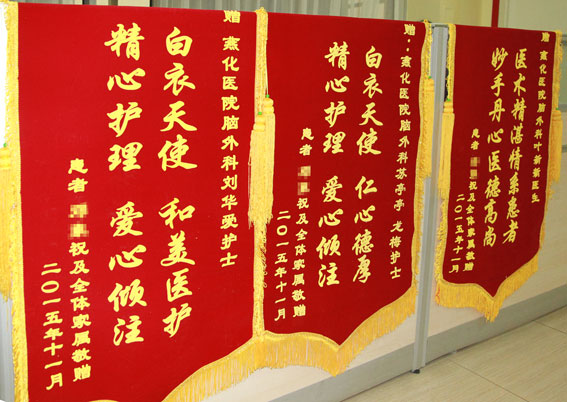 赠 燕化医院脑外科刘华爱护士
白衣天使 和美医护
精心护理 爱心倾注
患者 祝及全体家属敬赠
二〇一五年十一月
赠:燕化医院脑外科苏亭亭 龙梅护士
白衣天使 仁心德厚
精心护理 爱心倾注
患者 祝及全体家属敬赠
二〇一五年十一月
赠 燕化医院脑外科叶新新医生
医术精湛情系患者
妙手丹心医德高尚
患者 祝及全体家属敬赠
二〇一五年十一月